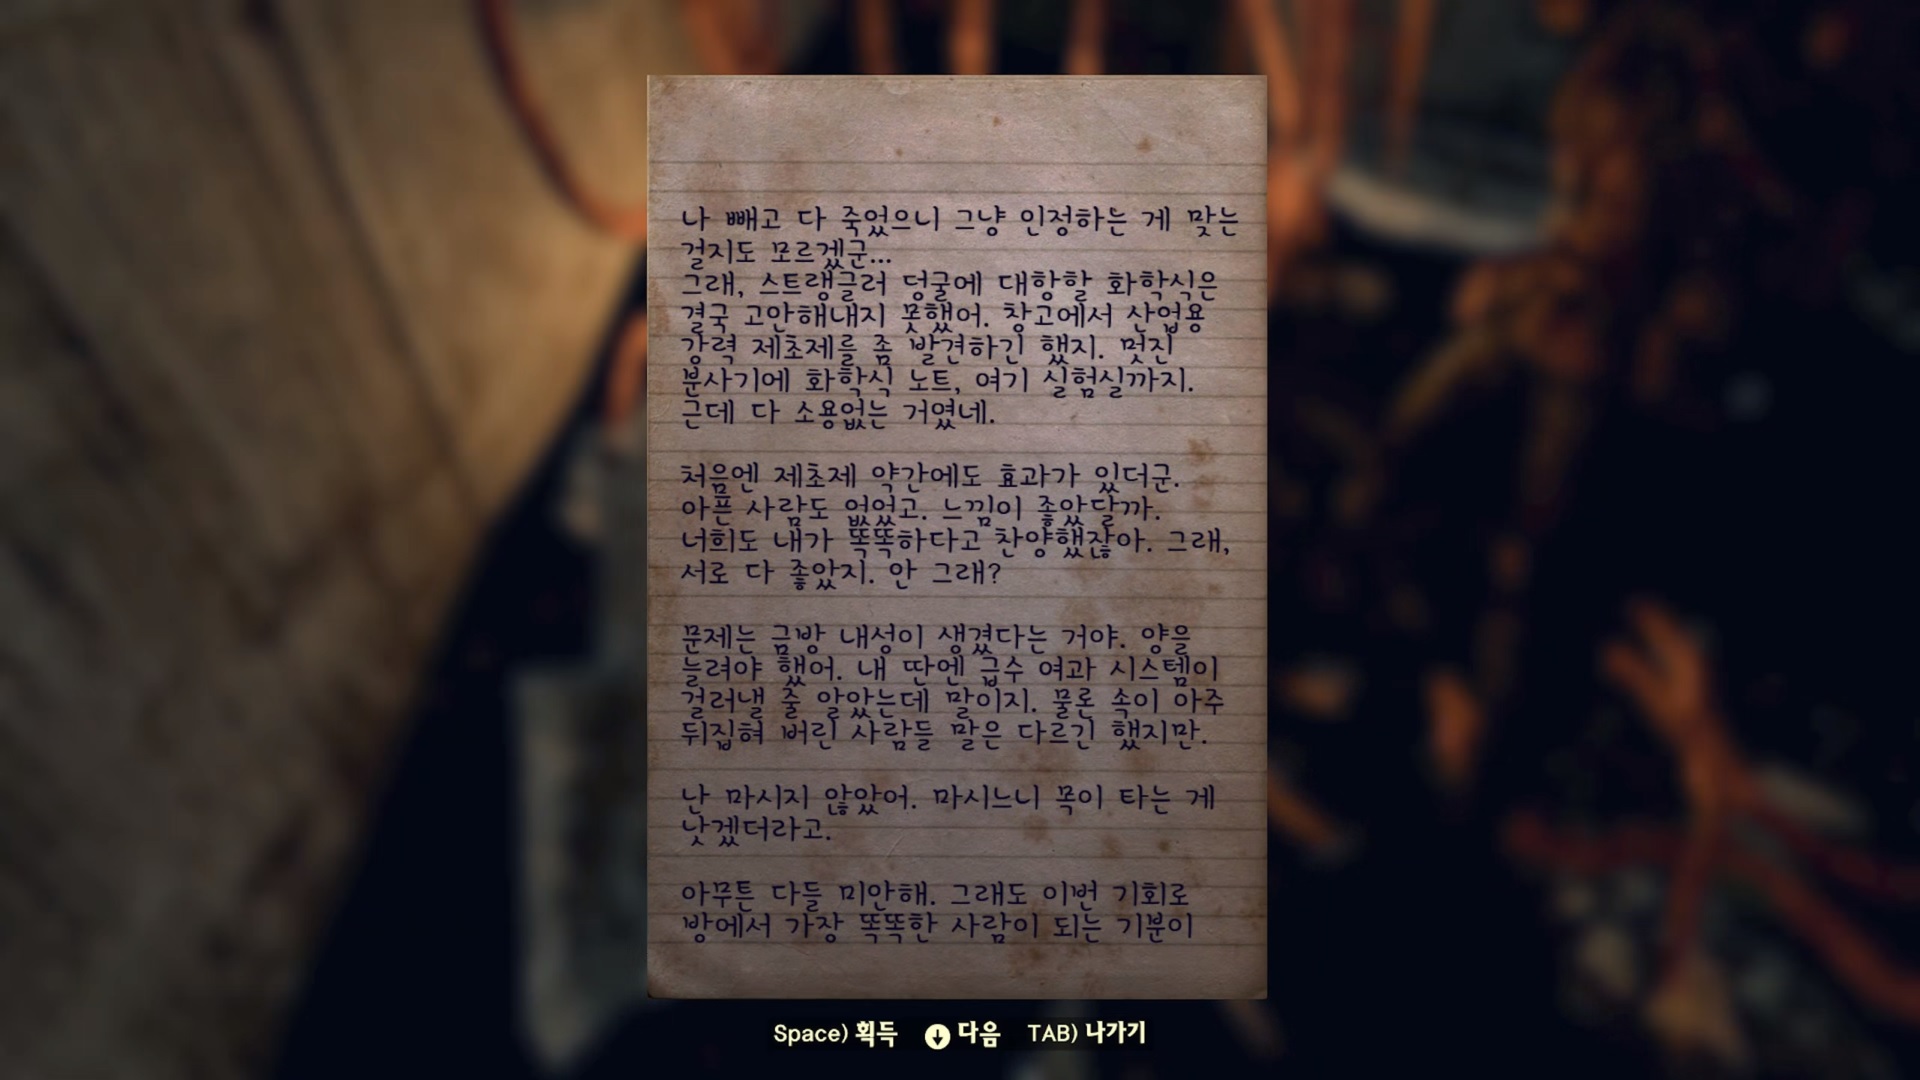 나 빼고 다 죽었으니 그냥 인정하는 게 맞는
걸지도 모르겠군...
그래, 스트랭글러 덩굴에 대항할 화학식은
결국 고안해내지 못했어. 창고에서 산업용
강력 제초제를 좀 발견하긴 했지. 멋진
분사기에 화학식 노트, 여기 실험실까지.
근데 다 소용없는 거였네.
처음엔 제초제 약간에도 효과가 있더군.
아픈 사람도 없었고. 느낌이 좋았달까.
너희도 내가 똑똑하다고 찬양했잖아. 그래,
서로 다 좋았지. 안 그래?
문제는 금방 내성이 생겼다는 거야. 양을
늘려야 했어. 내 딴엔 급수 여과 시스템이
걸러낼 줄 알았는데 말이지. 물론 속이 아주
뒤집혀 버린 사람들 말은 다르긴 했지만.
난 마시지 않았어. 마시느니 목이 타는 게
낫겠더라고.
아무튼 다들 미안해. 그래도 이번 기회로
방에서 가장 똑똑한 사람이 되는 기분이
Space) 획득 다음 TAB) 나가기